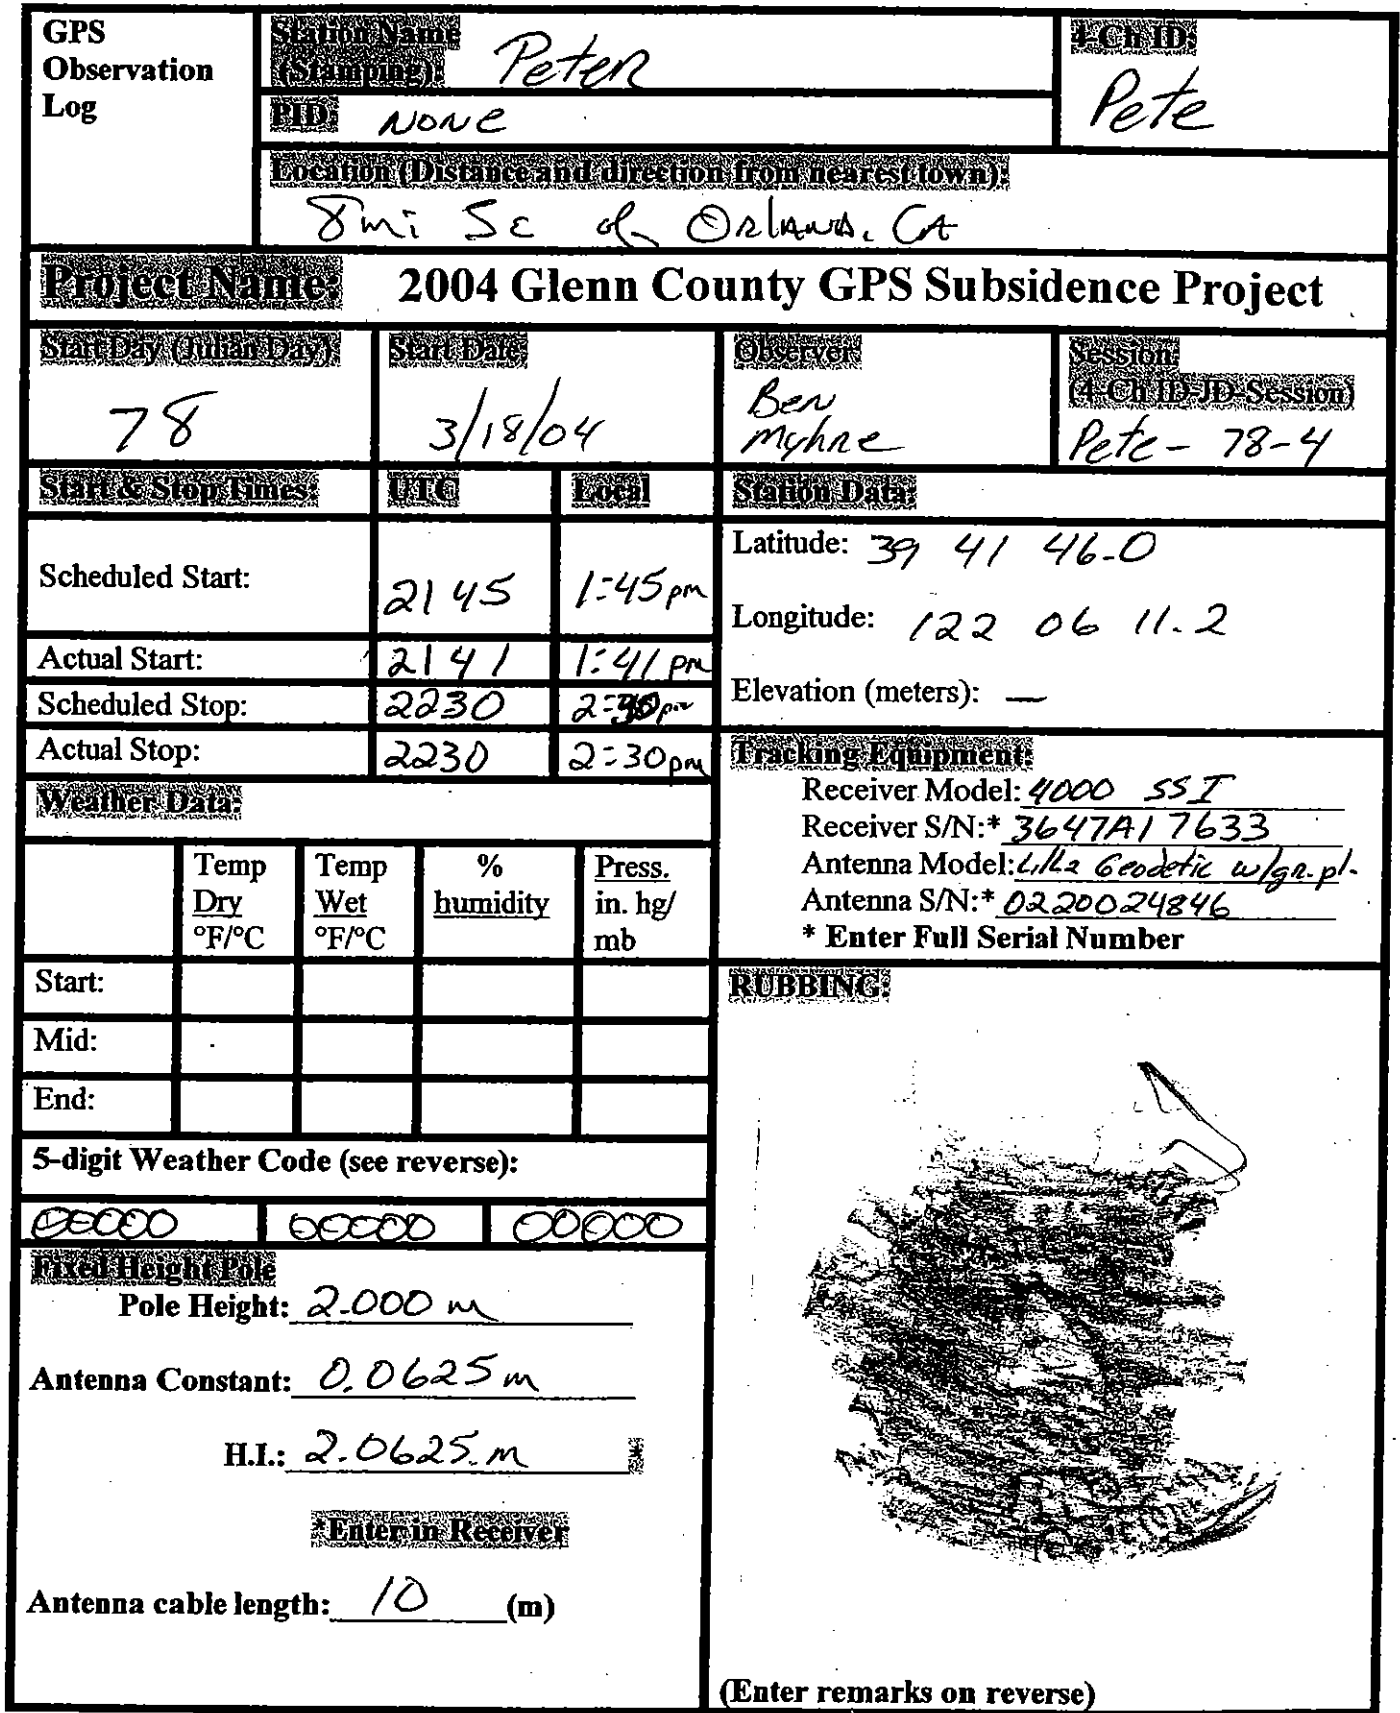 GPS Observation Log
Station Name (Stamping): Peter
4-Ch ID: Pete
PID: NONE
Location (Distance and direction from nearest town):
8mi SE of Orland, CA
Project Name: 2004 Glenn County GPS Subsidence Project
Start Day (Julian Day)
78
Start Date:
3/18/04
Observer
Ben Myhre
Session:
(4-Ch ID-JD-Session)
Pete - 78-4
Start & Stop Times: UTC Local
Scheduled Start: 2145 1:45pm
Actual Start: 2141 1:41pm
Scheduled Stop: 2230 2:30pm
Actual Stop: 2230 2:30pm
Station Data:
Latitude: 39 41 46.0
Longitude: 122 06 11.2
Elevation (meters): —
Tracking Equipment:
Receiver Model: 4000 SSI
Receiver S/N:* 3647A17633
Antenna Model: L1/L2 Geodetic w/gr.pl.
Antenna S/N:* 0220024846
* Enter Full Serial Number
Weather Data:
Temp Dry °F/°C
Temp Wet °F/°C
% humidity
Press. in. hg/ mb
Start:
Mid:
End:
5-digit Weather Code (see reverse):
00000 00000 00000
Fixed Height Pole
Pole Height: 2.000 m
Antenna Constant: 0.0625 m
H.I.: 2.0625 m *
*Enter in Receiver
Antenna cable length: 10 (m)
RUBBING:
(Enter remarks on reverse)